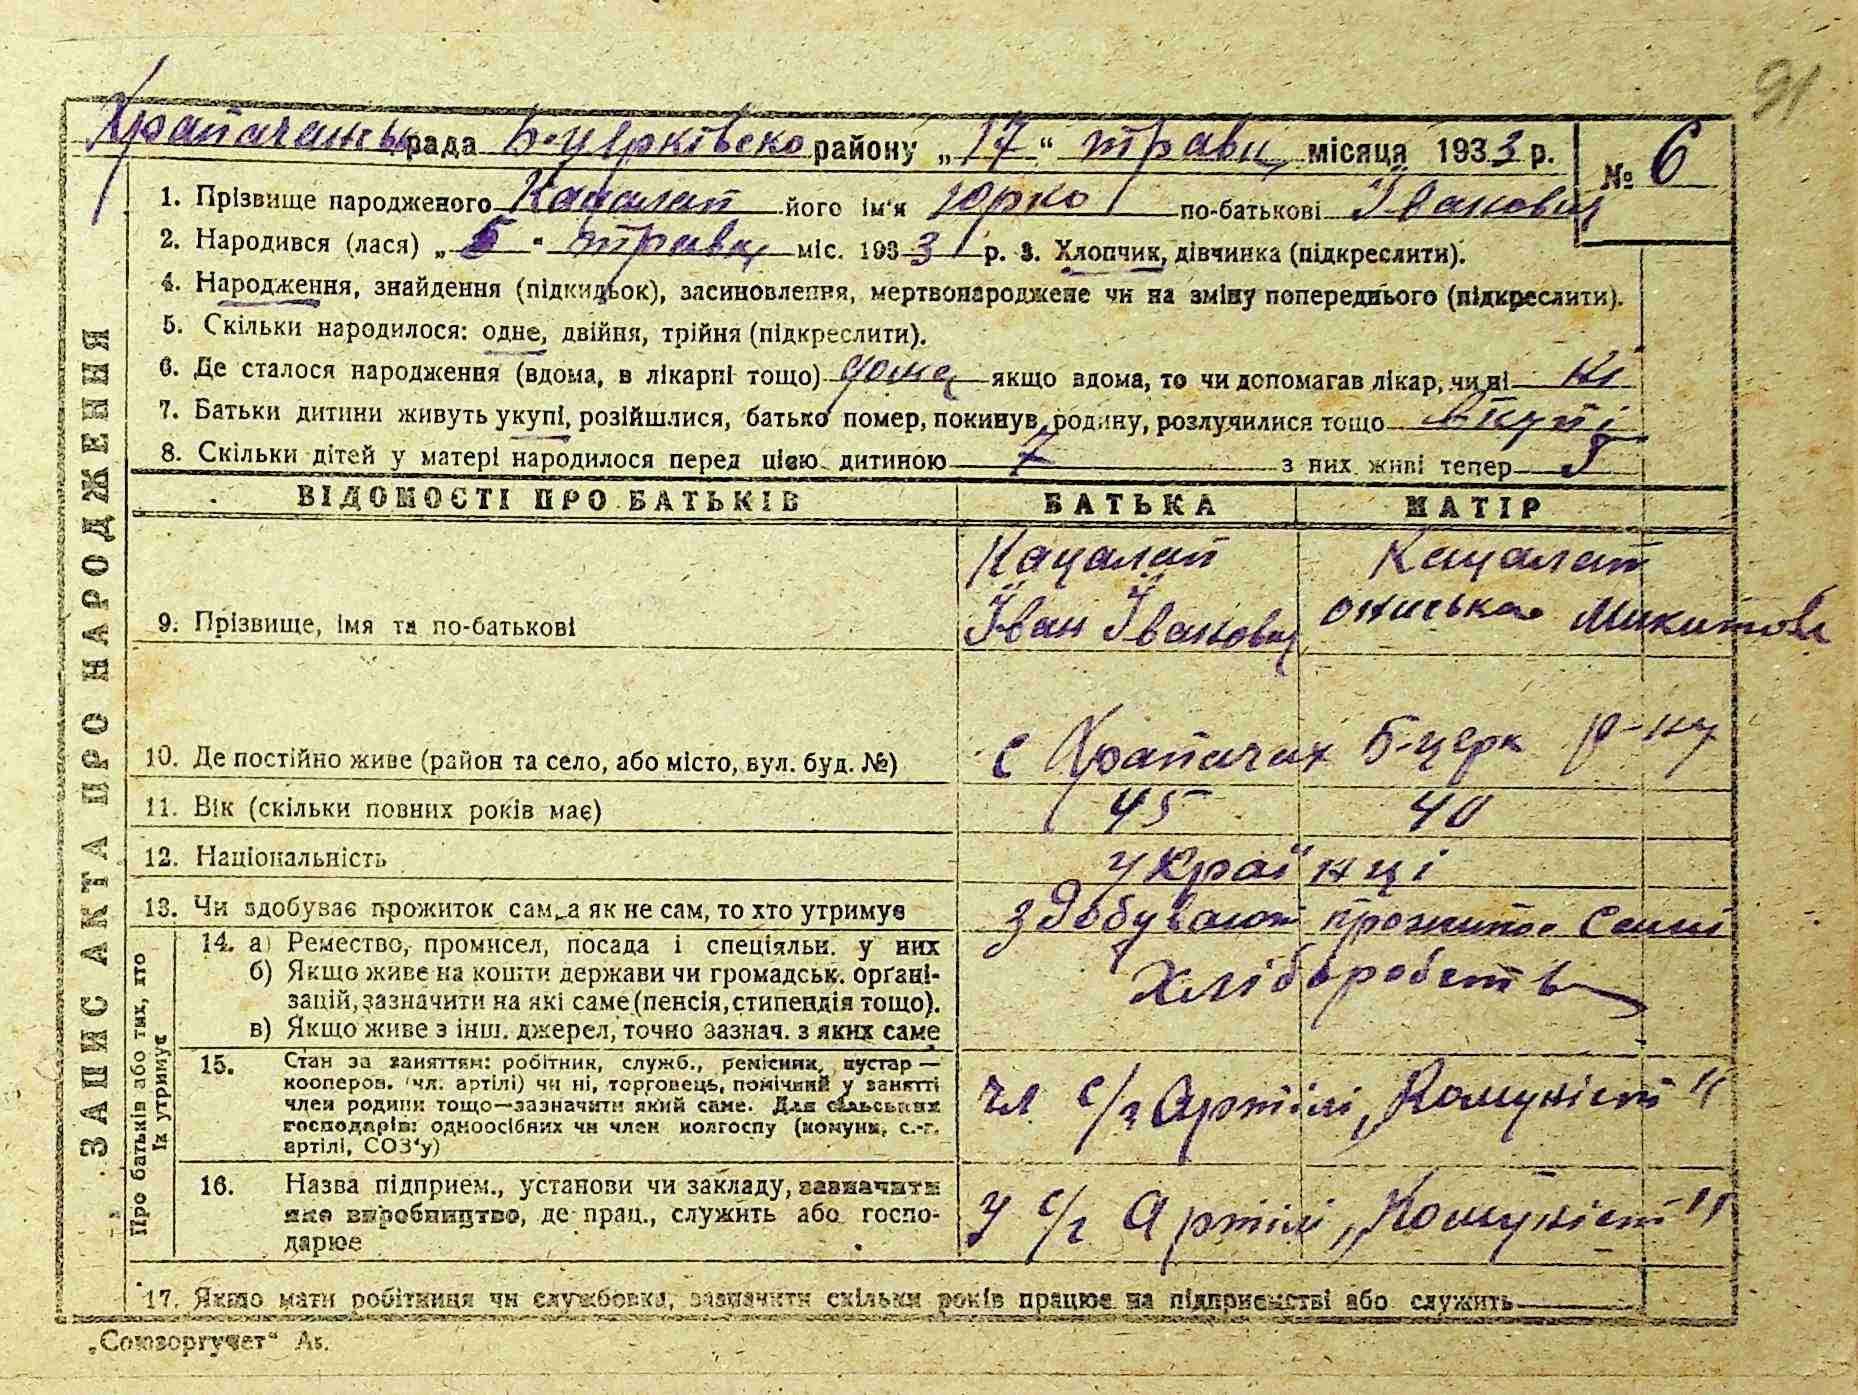 91
Храпачанська рада Б-Церківсько району „17“ травня місяця 1933 р. № 6
1. Прізвище народженого Кацалап його ім'я Юрко по-батькові Іванович
2. Народився (лася) „5“ травня міс. 1933 р. 3. Хлопчик, дівчинка (підкреслити).
4. Народження, знайдення (підкидьок), засиновлення, мертвонароджене чи на зміну попереднього (підкреслити).
5. Скільки народилося: одне, двійня, трійня (підкреслити).
6. Де сталося народження (вдома, в лікарні тощо) дома якщо вдома, то чи допомагав лікар, чи ні ні
7. Батьки дитини живуть укупі, розійшлися, батько помер, покинув родину, розлучилися тощо вкупі
8. Скільки дітей у матері народилося перед цією дитиною 7 з них живі тепер 5
ВІДОМОСТІ ПРО БАТЬКІВ БАТЬКА МАТІР
9. Прізвище, імя та по-батькові
Кацалап Іван Іванович
Кацалап Ониська Микитовн
10. Де постійно живе (район та село, або місто, вул. буд. №) с Храпачах Б-церк р-ну
11. Вік (скільки повних років має) 45 40
12. Національність українці
13. Чи здобуває прожиток сам, а як не сам, то хто утримує здобувают прожиток сами
14. а) Ремество, промисел, посада і спеціяльн. у них Хліборобств
б) Якщо живе на кошти держави чи громадськ. органі-
зацій, зазначити на які саме (пенсія, стипендія тощо).
в) Якщо живе з інш. джерел, точно зазнач. з яких саме
15. Стан за заняттям: робітник, служб., ремісник, кустар —
кооперов. (чл. артілі) чи ні, торговець, помічний у занятті
член родини тощо—зазначити який саме. Для сільських
господарів: одноосібних чи член колгоспу (комуни, с.-г.
артілі, СОЗ'у)
чл с/г Артілі „Комуніст"
16. Назва підприєм., установи чи закладу, зазначити
яке виробництво, де прац., служить або госпо-
дарює
у с/г Артілі „Комуніст"
17. Якщо мати робітниця чи службовка, зазначити скільки років працює на підприємстві або служить
ЗАПИС АКТА ПРО НАРОДЖЕННЯ
Про батьків або тих, хто
їх утримує
„Союзоргучет“ Ак.